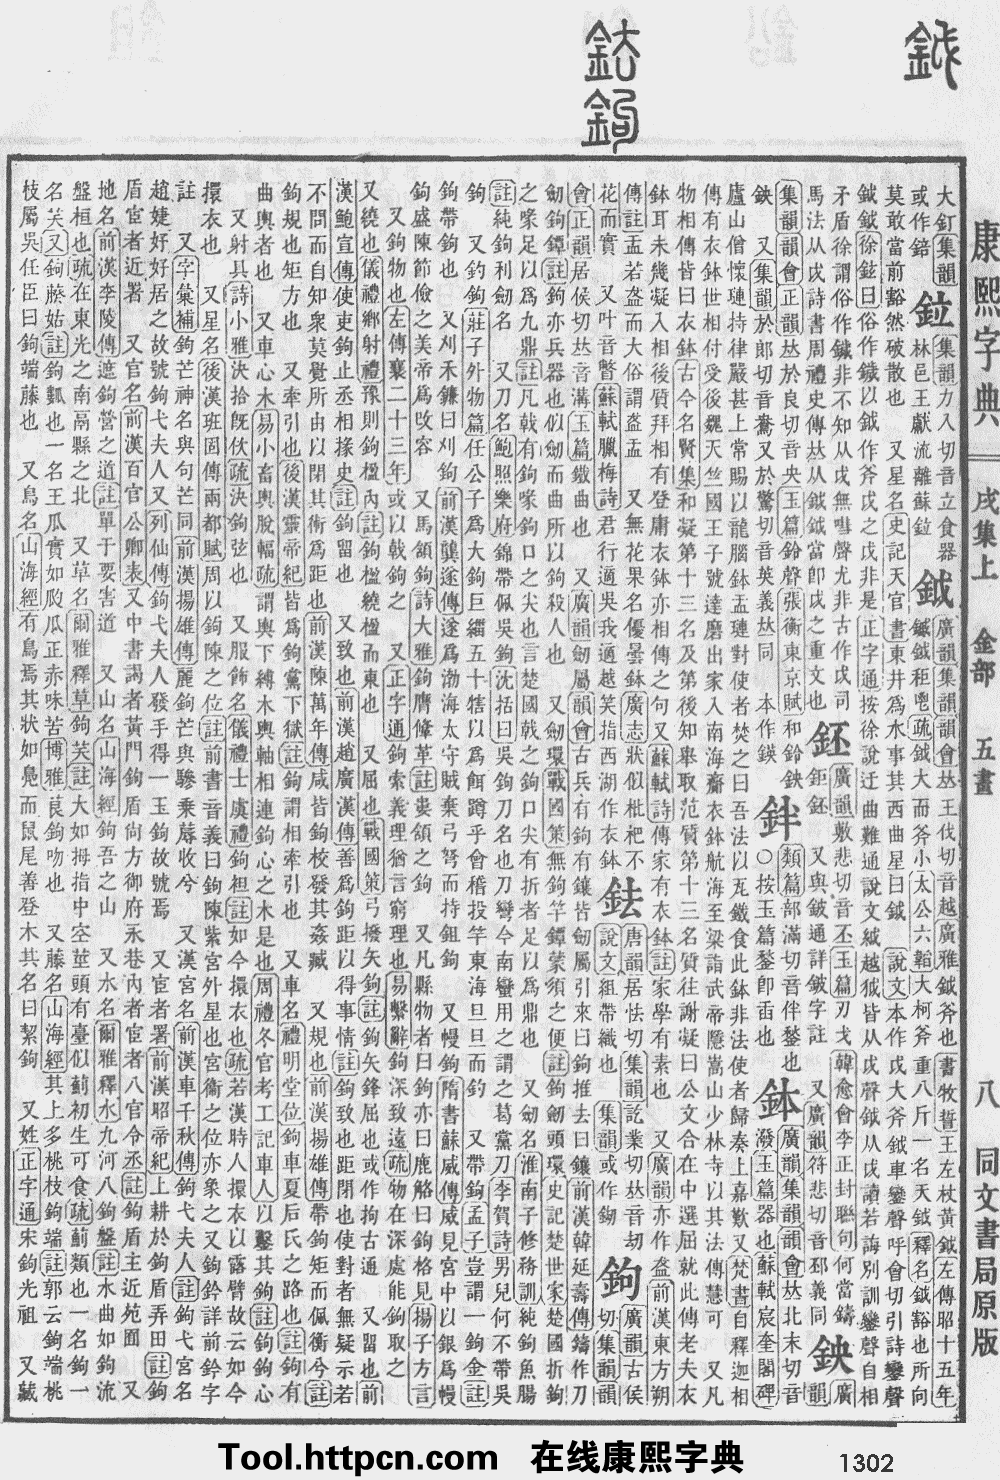 康熙字典 戌集上 金部 五畫 八官 同文書局原版
大釘集韻
或作鋙
鉝
集韻力入切音立食器
林邑王獻流離蘇鉝
鉞
廣韻集韻韻會𠀤王伐切音越廣雅鉞斧也書牧誓王左杖黃鉞左傳昭十五年
鏚鉞秬鬯疏鉞大而斧小太公六韜大柯斧重八斤一名天鉞釋名鉞豁也所向
莫敢當前豁然破散也 又星名史記天官書東井爲水事其西曲星曰鉞 說文本作戉大斧鉞車鑾聲呼會切引詩鑾聲
鉞鉞徐鉉曰俗作鐬以鉞作斧戉之戉非是正字通按徐說迂曲難通說文絨越狘皆从戉聲鉞从戉讀若誨別訓鑾聲自相
矛盾徐謂俗作鐬非不知从戉無嘒聲尤非古作戉司
馬法从戉詩書周禮史傳𠀤从鉞鉞當卽戉之重文也
鉟
廣韻敷悲切音丕玉篇刃戈韓愈會李正封聯句何當鑄
鉅鉟 又與鈹通詳鈹字註 又廣韻符悲切音邳義同
鉠
廣
韻
集韻韻會正韻𠀤於良切音央玉篇鈴聲張衡東京賦和鈴鉠
鉠 又集韻於郎切音鴦又於驚切音英義𠀤同 本作鍈
鉡
類篇部滿切音伴鍫也
○按玉篇鍫卽臿也
鉢
廣韻集韻韻會𠀤北末切音
潑玉篇器也蘇軾宸奎閣碑
廬山僧懷璉持律嚴甚上常賜以龍腦鉢盂璉對使者焚之曰吾法以瓦鐵食此鉢非法使者歸奏上嘉歎又梵書自釋迦相
傳有衣鉢世相付受後魏天竺國王子號達磨出家入南海齎衣鉢航海至梁詣武帝隱嵩山少林寺以其法傳慧可 又凡
物相傳皆曰衣鉢古今名賢集和凝第十三名及第後知舉取范質第十三名質往謝凝曰公文合在中選屈就此傳老夫衣
鉢耳未幾凝入相後質拜相有登庸衣鉢亦相傳之句又蘇軾詩傳家有衣鉢註家學有素也 又廣韻亦作盋前漢東方朔
傳註盂若盋而大俗謂盋盂 又無花果名優曇鉢廣志狀似枇杷不
花而實 又叶音瞥蘇軾臘梅詩君行適吳我適越笑指西湖作衣鉢
鉣
唐韻居怯切集韻訖業切𠀤音刧
說文組帶鐵也 集韻或作
鉤
廣韻古侯
切集韻韻
會正韻居侯切𠀤音溝玉篇鐵曲也 又廣韻劒屬韻會古兵有鉤有鑲皆劒屬引來曰鉤推去曰鑲前漢韓延壽傳鑄作刀
劒鉤鐔註鉤亦兵器也似劒而曲所以鉤殺人也 又劒環戰國策無鉤竿鐔蒙須之便註鉤劒頭環史記楚世家楚國折鉤
之喙足以爲九鼎註凡戟有鉤喙鉤口之尖也言楚國戟之鉤口尖有折者足以爲鼎也 又劒名淮南子修務訓純鉤魚腸
註純鉤利劒名 又刀名鮑照樂府錦帶佩吳鉤沈括曰吳鉤刀名也刀彎今南蠻用之謂之葛黨刀李賀詩男兒何不帶吳
鉤 又釣鉤莊子外物篇任公子爲大鉤巨緇五十犗以爲餌蹲乎會稽投竿東海旦旦而釣 又帶鉤孟子豈謂一鉤金註
鉤帶鉤也 又刈禾鎌曰刈鉤前漢龔遂傳遂爲渤海太守賊棄弓弩而持鉏鉤 又幔鉤隋書蘇威傳威見宮中以銀爲幔
鉤盛陳節儉之美帝爲改容 又馬頷鉤詩大雅鉤膺鞗革註婁頷之鉤 又凡縣物者曰鉤亦曰鹿觡曰鉤格見揚子方言
又鉤物也左傳襄二十三年或以戟鉤之 又正字通鉤索義理猶言窮理也易繫辭鉤深致遠疏物在深處能鉤取之
又繞也儀禮鄉射禮豫則鉤楹內註鉤楹繞楹而東也 又屈也戰國策弓撥矢鉤註鉤矢鋒屈也或作拘古通 又留也前
漢鮑宣傳使吏鉤止丞相掾史註鉤留也 又致也前漢趙廣漢傳善爲鉤距以得事情註鉤致也距閉也使對者無疑示若
不問而自知衆莫覺所由以閉其術爲距也前漢陳萬年傳咸皆鉤校發其姦臧 又規也前漢揚雄傳帶鉤矩而佩衡兮註
鉤規也矩方也 又牽引也後漢靈帝紀皆爲鉤黨下獄註鉤謂相牽引也 又車名禮明堂位鉤車夏后氏之路也註鉤有
曲輿者也 又車心木易小畜輿脫輻疏謂輿下縛木輿軸相連鉤心之木是也周禮冬官考工記車人以鑿其鉤註鉤鉤心
又射具詩小雅決拾旣佽疏決鉤弦也 又服飾名儀禮士虞禮鉤袒註如今擐衣也疏若漢時人擐衣以露臂故云如今
擐衣也 又星名後漢班固傳兩都賦周以鉤陳之位註前書音義曰鉤陳紫宮外星也宮衞之位亦象之又鉤鈐詳前鈐字
註 又字彙補鉤芒神名與句芒同前漢揚雄傳麗鉤芒與驂乘蓐收兮 又漢宮名前漢車千秋傳鉤弋夫人註鉤弋宮名
趙婕妤好居之故號鉤弋夫人又列仙傳鉤弋夫人發手得一玉鉤故號焉 又宦者署前漢昭帝紀上耕於鉤盾弄田註鉤
盾宦者近署 又官名前漢百官公卿表又中書謁者黃門鉤盾尚方御府永巷內者宦者八官令丞註鉤盾主近苑囿 又
地名前漢李陵傳遮鉤營之道註單于要害道 又山名山海經鉤吾之山 又水名爾雅釋水九河八鉤盤註水曲如鉤流
盤桓也疏在東光之南鬲縣之北 又草名爾雅釋草鉤芺註大如拇指中空莖頭有臺似薊初生可食疏薊類也一名鉤一
名芺又鉤藈姑註鉤㼎也一名王瓜實如瓝瓜正赤味苦博雅莨鉤吻也 又藤名山海經其上多桃枝鉤端註郭云鉤端桃
枝屬吳任臣曰鉤端藤也 又鳥名山海經有鳥焉其狀如鳧而鼠尾善登木其名曰絜鉤 又姓正字通宋鉤光祖 又藏
Tool.httpcn.com 在线康熙字典
1302